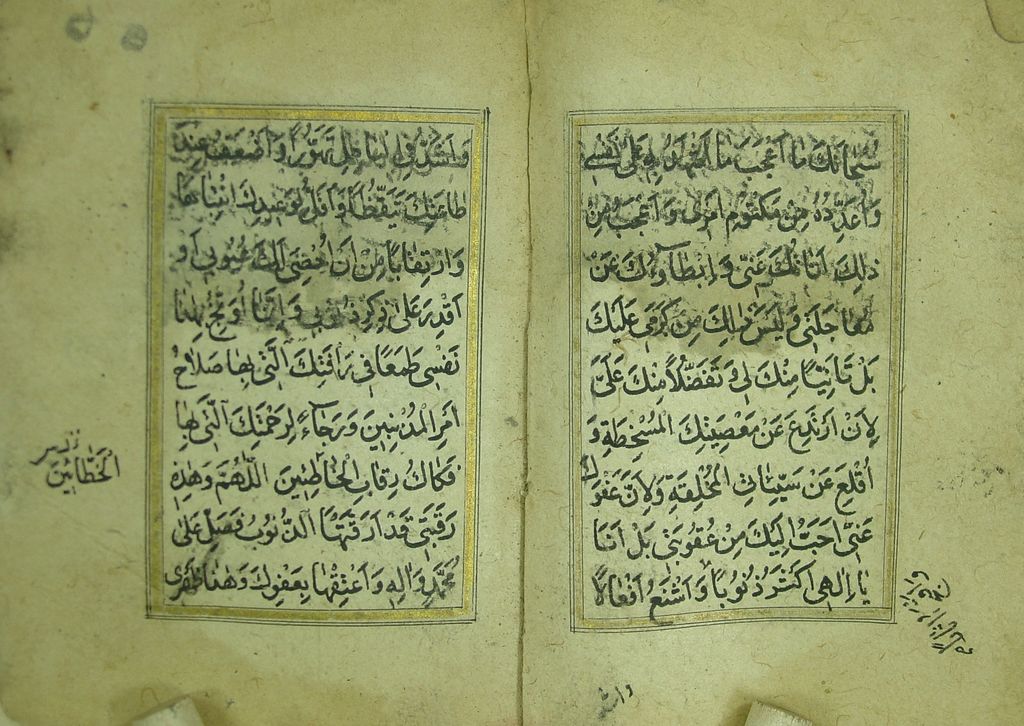 سُبْحَانَكَ مَا اَعْجَبَ مَا اَشْهَدُ بِهِ عَلٰى نَفْسِي
وَاُعَدِّدُهُ مِنْ مَكْتُومِ اَمْرِي وَاَعْجَبُ مِنْ
ذٰلِكَ اَنَاتُكَ عَنِّي وَاِبْطَاۤؤُكَ عَنْ
مُعَاجَلَتِي وَلَيْسَ ذٰلِكَ مِنْ كَرَمِي عَلَيْكَ
بَلْ تَاَنِّيًا مِنْكَ لِي وَتَفَضُّلًا مِنْكَ عَلَيَّ
لِاَنْ اَرْتَدِعَ عَنْ مَعْصِيَتِكَ الْمُسْخِطَةِ وَ
اُقْلِعَ عَنْ سَيِّئَاتِي الْمُخْلِقَةِ وَلِاَنَّ عَفْوَكَ
عَنِّي اَحَبُّ اِلَيْكَ مِنْ عُقُوبَتِي بَلْ اَنَا
يَا اِلٰهِي اَكْثَرُ ذُنُوبًا وَاَشْنَعُ اَفْعَالًا
واشد
وَاَشَدُّ فِي الْبَاطِلِ تَهَوُّرًا وَاَضْعَفُ عِنْدَ
طَاعَتِكَ تَيَقُّظًا وَاَقَلُّ لِوَعِيدِكَ انْتِبَاهًا
وَارْتِقَابًا مِنْ اَنْ اُحْصِيَ لَكَ عُيُوبِي اَوْ
اَقْدِرَ عَلٰى ذِكْرِ ذُنُوبِي وَاِنَّمَا اُوَبِّخُ بِهٰذَا
نَفْسِي طَمَعًا فِي رَاْفَتِكَ الَّتِي بِهَا صَلَاحُ
اَمْرِ الْمُذْنِبِينَ وَرَجَاۤءً لِرَحْمَتِكَ الَّتِي بِهَا
فَكَاكُ رِقَابِ الْخَاطِئِينَ اَللّٰهُمَّ وَهٰذِهِ
رَقَبَتِي قَدْ اَرَقَّتْهَا الذُّنُوبُ فَصَلِّ عَلٰى
مُحَمَّدٍ وَاٰلِهِ وَاَعْتِقْهَا بِعَفْوِكَ وَهٰذَا ظَهْرِي
الخطائين